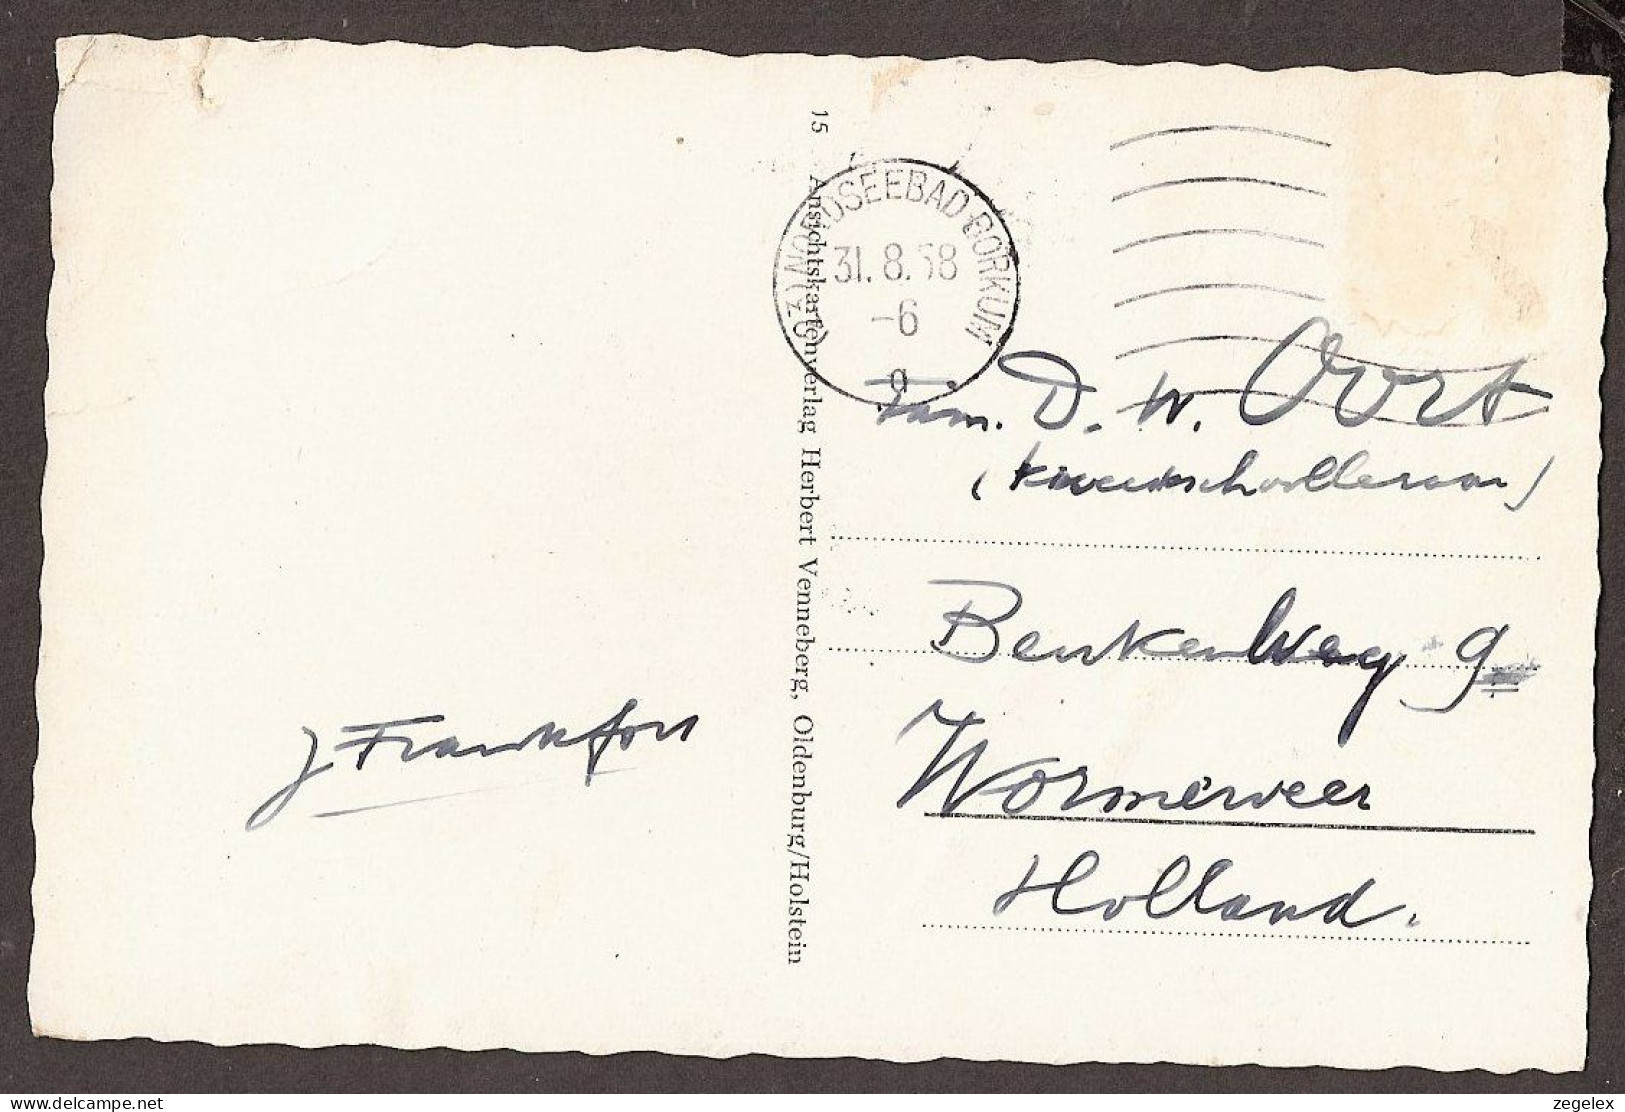 J Frankfort
15 Ansichtskartenverlag Herbert Venneberg, Oldenburg/Holstein
(23) NORDSEEBAD BORKUM
31.8.58
-6
a
Fam. D. W. Oort
(kweekschoolleraar)
Benkenweg 9
Wormerveer
Holland.
www.delcampe.net
zegelex